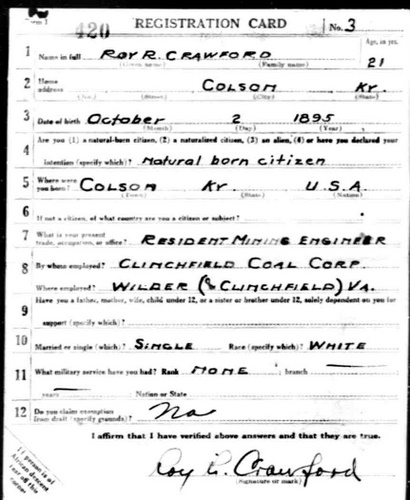 Form 1 420 REGISTRATION CARD No. 3
1 Name in full ROY R. CRAWFORD Age, in yrs. 21
(Given name) (Family name)
2 Home address COLSON KY.
(No.) (Street) (City) (State)
3 Date of birth October 2 1895
(Month) (Day) (Year)
4 Are you (1) a natural-born citizen, (2) a naturalized citizen, (3) an alien, (4) or have you declared your
intention (specify which)? Natural born citizen
5 Where were you born? COLSON KY. U.S.A.
(Town) (State) (Nation)
6 If not a citizen, of what country are you a citizen or subject?
7 What is your present trade, occupation, or office? RESIDENT MINING ENGINEER
8 By whom employed? CLINCHFIELD COAL CORP.
Where employed? WILDER ( CLINCHFIELD) VA.
9 Have you a father, mother, wife, child under 12, or a sister or brother under 12, solely dependent on you for
support (specify which)?
10 Married or single (which)? SINGLE Race (specify which)? WHITE
11 What military service have you had? Rank NONE ; branch
years Nation or State
12 Do you claim exemption from draft (specify grounds)? No
I affirm that I have verified above answers and that they are true.
Roy R. Crawford
(Signature or mark)
If person is of
African descent
tear off this
corner